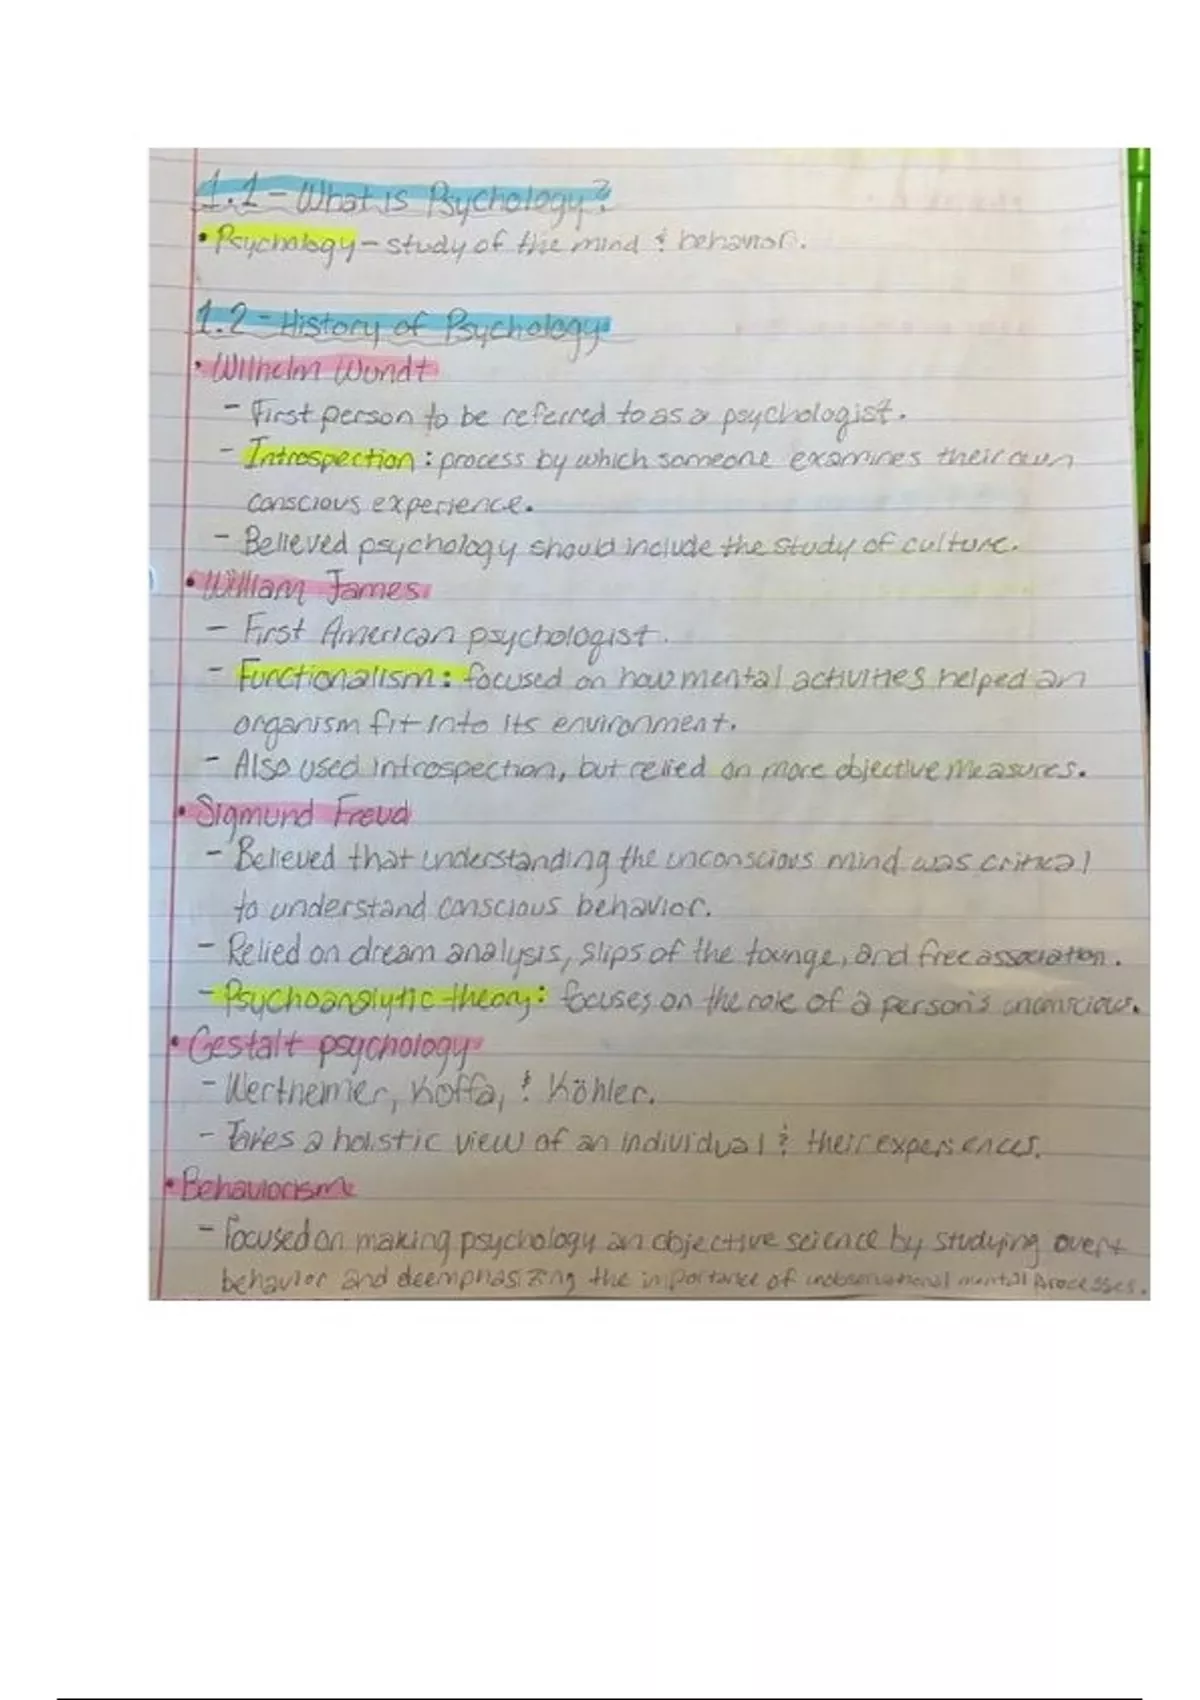 1.1 - What is Psychology?
• Psychology - study of the mind & behavior.
1.2 - History of Psychology
• Wilhelm Wundt
- First person to be referred to as a psychologist.
- Introspection: process by which someone examines their own
conscious experience.
- Believed psychology should include the study of culture.
• William James
- First American psychologist.
- Functionalism: focused on how mental activities helped an
organism fit into its environment.
- Also used introspection, but relied on more objective measures.
• Sigmund Freud
- Believed that understanding the unconscious mind was critical
to understand conscious behavior.
- Relied on dream analysis, slips of the tounge, and free association.
- Psychoanalytic theory: focuses on the role of a person's unconscious.
• Gestalt psychology
- Wertheimer, Koffa, & Köhler.
- Takes a holistic view of an individual & their experiences.
• Behaviorism
- Focused on making psychology an objective science by studying overt
behavior and deemphasizing the importance of unobservational mental processes.